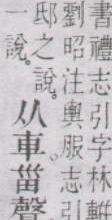 書禮志引字林輧
劉昭注輿服志引
邸之說。
一說。
从車甾聲